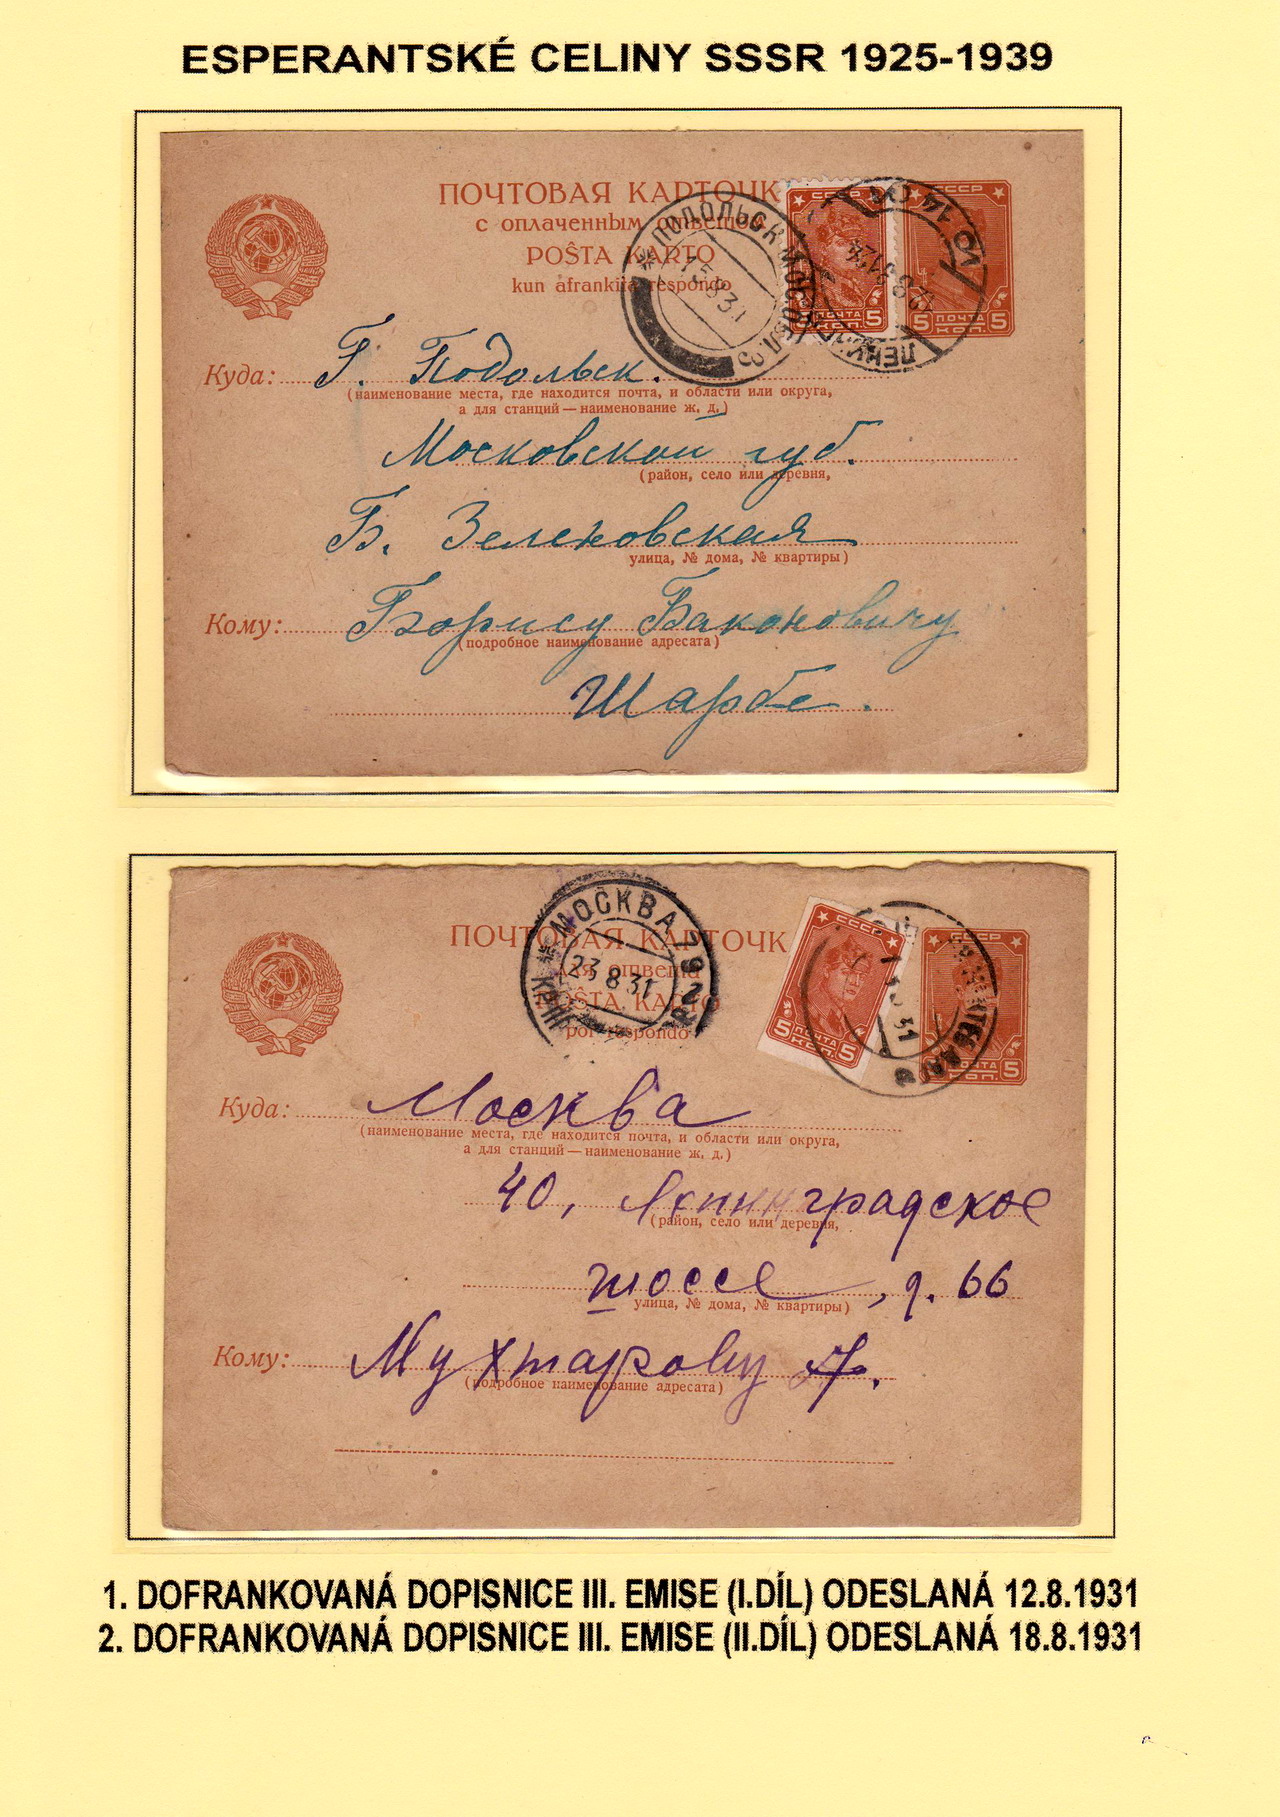 ESPERANTSKÉ CELINY SSSR 1925-1939
ПОЧТОВАЯ КАРТОЧК
с оплаченным ответом
POŜTA KARTO
kun afrankita respondo
СССР
ПОЧТА
5 КОП. 5
СССР
5 ПОЧТА 5
КОП.
ПОДОЛЬСК МОСК
13 8 31
Куда: Г. Подольск.
(наименование места, где находится почта, и области или округа,
а для станций — наименование ж. д.)
Московской губ.
(район, село или деревня,
Б. Зеленовская
улица, № дома, № квартиры)
Кому: Борису
(подробное наименование адресата)
Шарбе.
ПОЧТОВАЯ КАРТОЧК
для ответа
POŜTA KARTO
por respondo
МОСКВА
23 8 31
СССР
5 ПОЧТА 5
КОП.
СССР
5
Куда: Москва
(наименование места, где находится почта, и области или округа,
а для станций — наименование ж. д.)
40, Ленинградское
(район, село или деревня,
шоссе, д. 66
улица, № дома, № квартиры)
Кому: Мухтарову А.
(подробное наименование адресата)
1. DOFRANKOVANÁ DOPISNICE III. EMISE (I.DÍL) ODESLANÁ 12.8.1931
2. DOFRANKOVANÁ DOPISNICE III. EMISE (II.DÍL) ODESLANÁ 18.8.1931